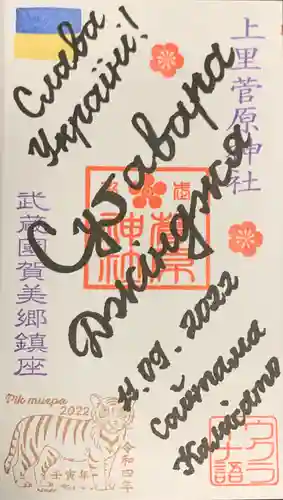 Слава
Україні!
上里菅原神社
Сугавара
Джінджя
菅原
神社
武蔵國賀美郷鎮座
11.09.2022
Сайтама
Камісато
Рік тигра
2022
壬寅年
令和四年
ウクラ
イナ語